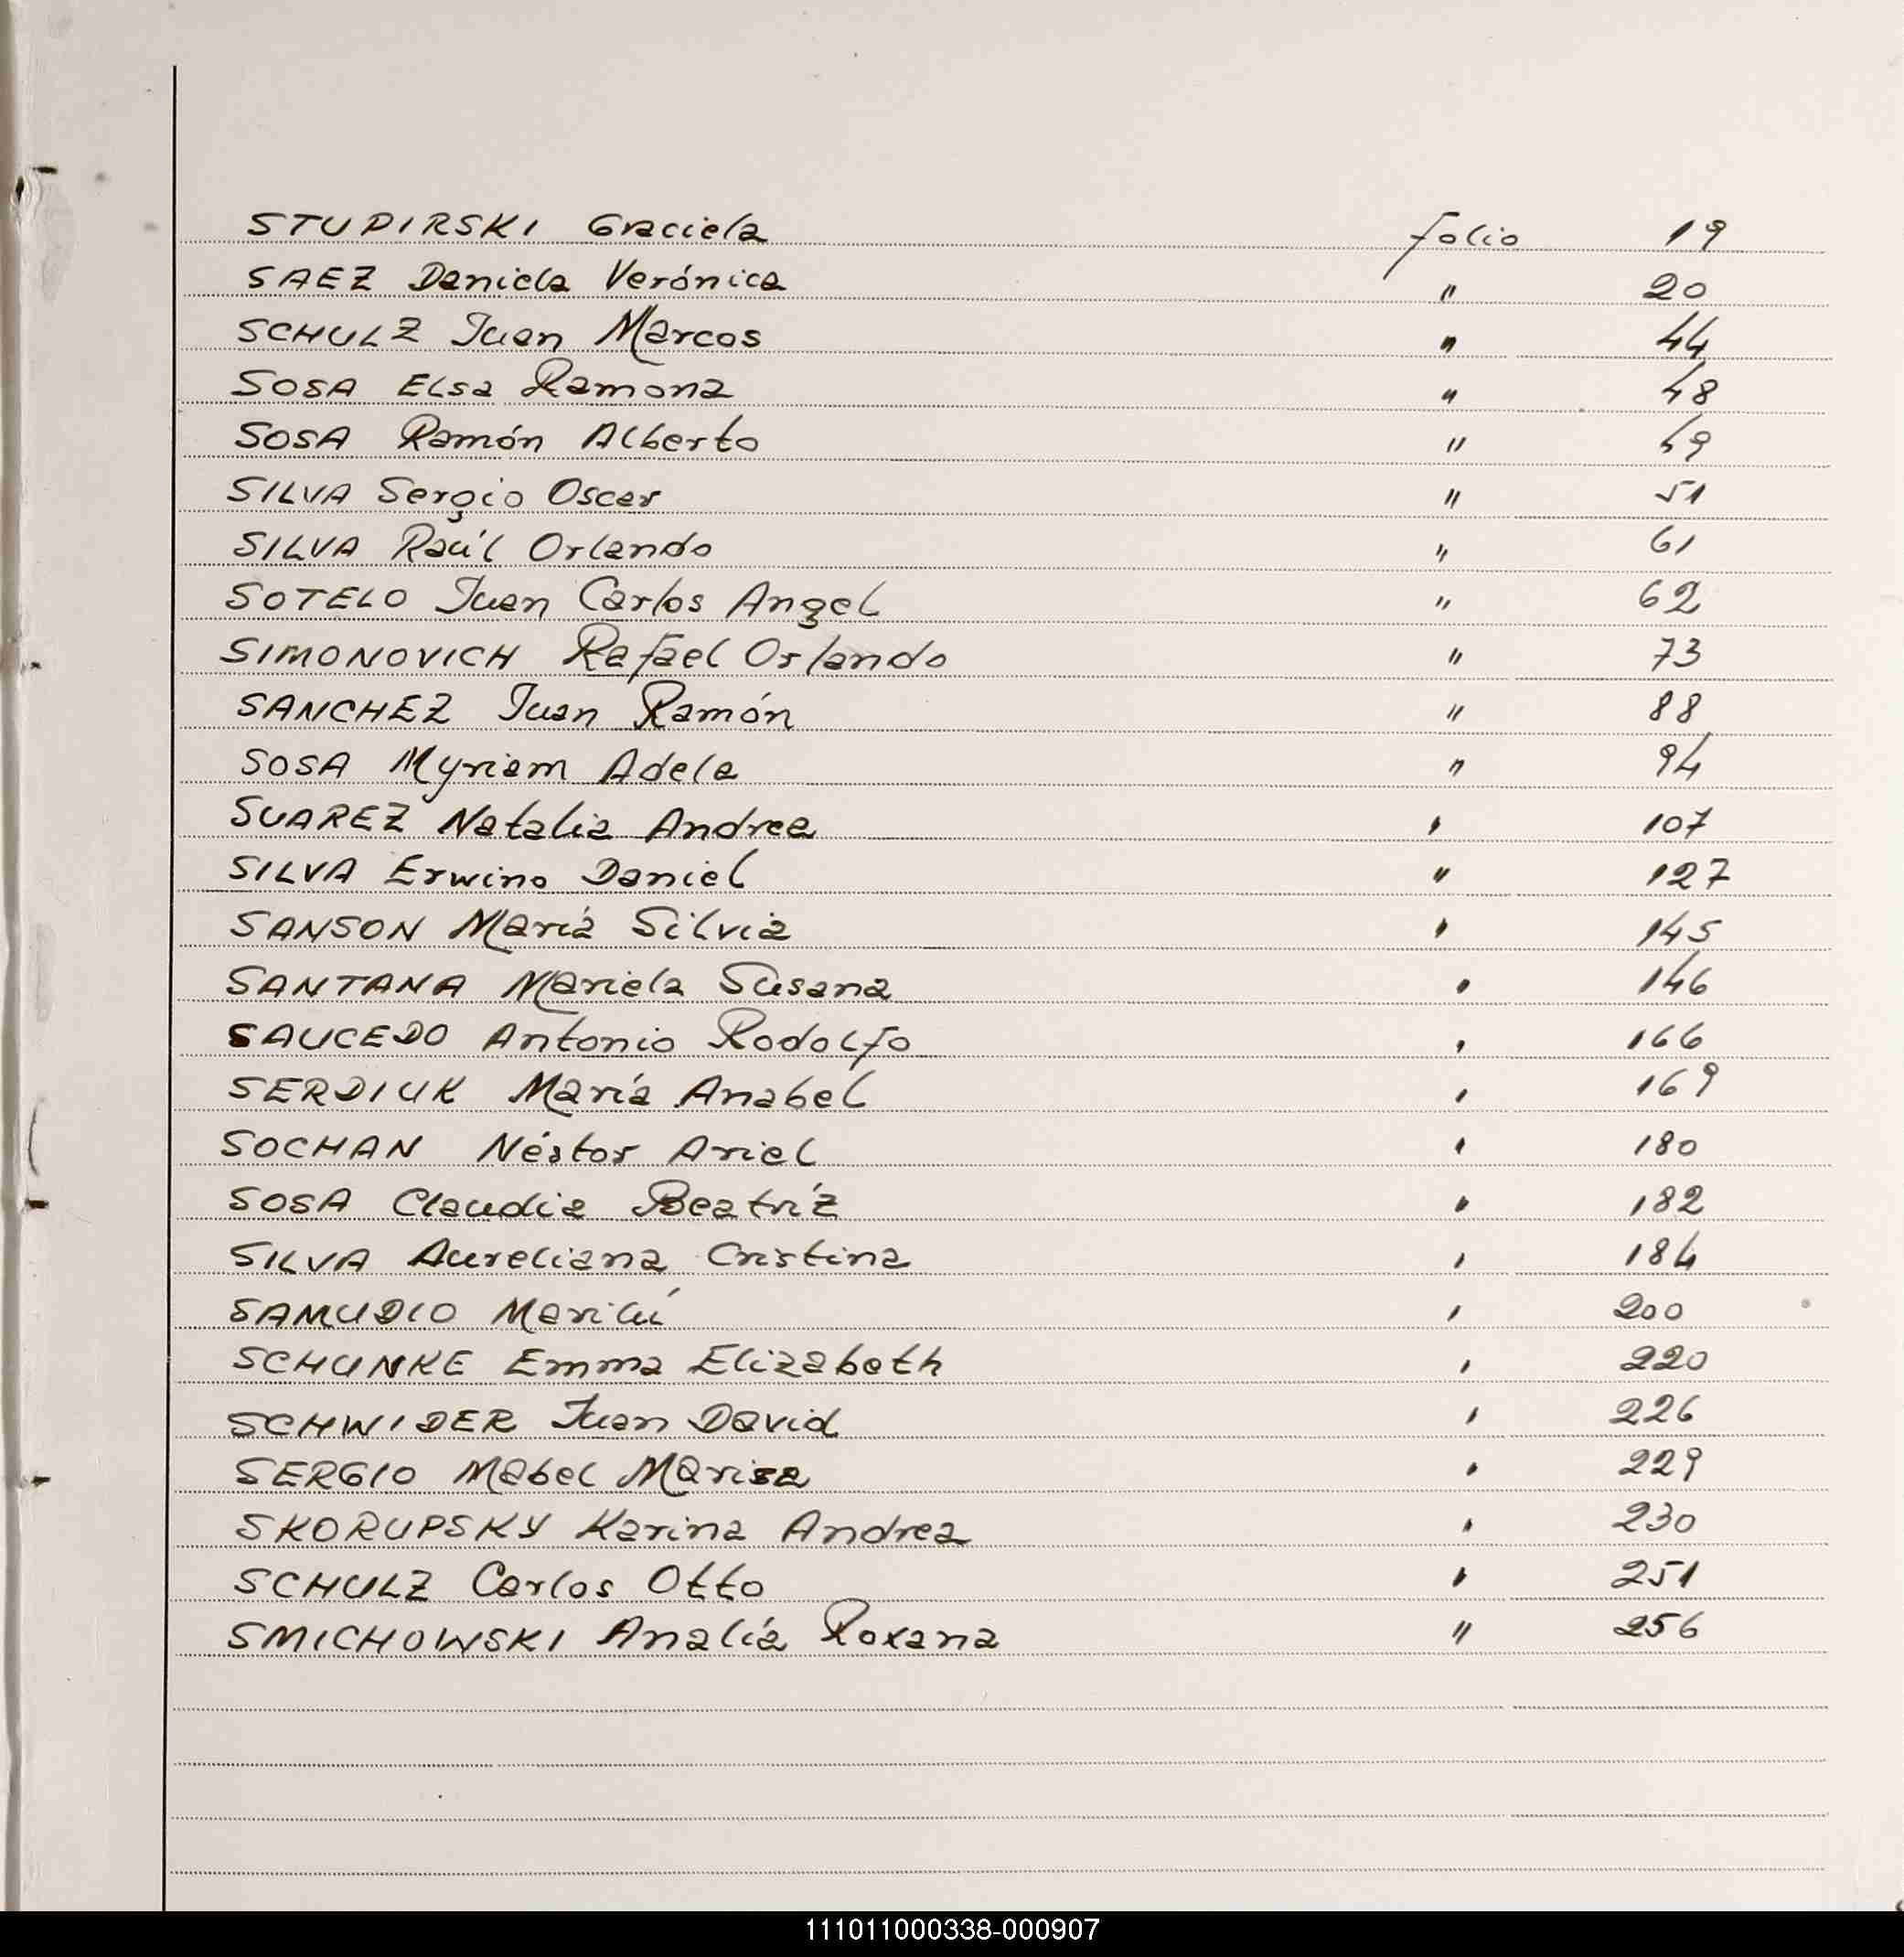 STUPIRSKI Graciela folio 19
SAEZ Daniela Verónica " 20
SCHULZ Juan Marcos " 44
SOSA Elsa Ramona " 48
SOSA Ramón Alberto " 49
SILVA Sergio Oscar " 51
SILVA Raúl Orlando " 61
SOTELO Juan Carlos Angel " 62
SIMONOVICH Rafael Orlando " 73
SANCHEZ Juan Ramón " 88
SOSA Myriam Adela " 94
SUAREZ Natalia Andrea " 107
SILVA Erwino Daniel " 127
SANSON María Silvia " 145
SANTANA Mariela Susana " 146
SAUCEDO Antonio Rodolfo " 166
SERDIUK María Anabel " 169
SOCHAN Néstor Ariel " 180
SOSA Claudia Beatríz " 182
SILVA Aureliana Cristina " 184
SAMUDIO Marilú " 200
SCHUNKE Emma Elizabeth " 220
SCHWIDER Juan David " 226
SERGIO Mabel Marisa " 229
SKORUPSKY Karina Andrea " 230
SCHULZ Carlos Otto " 251
SMICHOWSKI Analía Roxana " 256
111011000338-000907